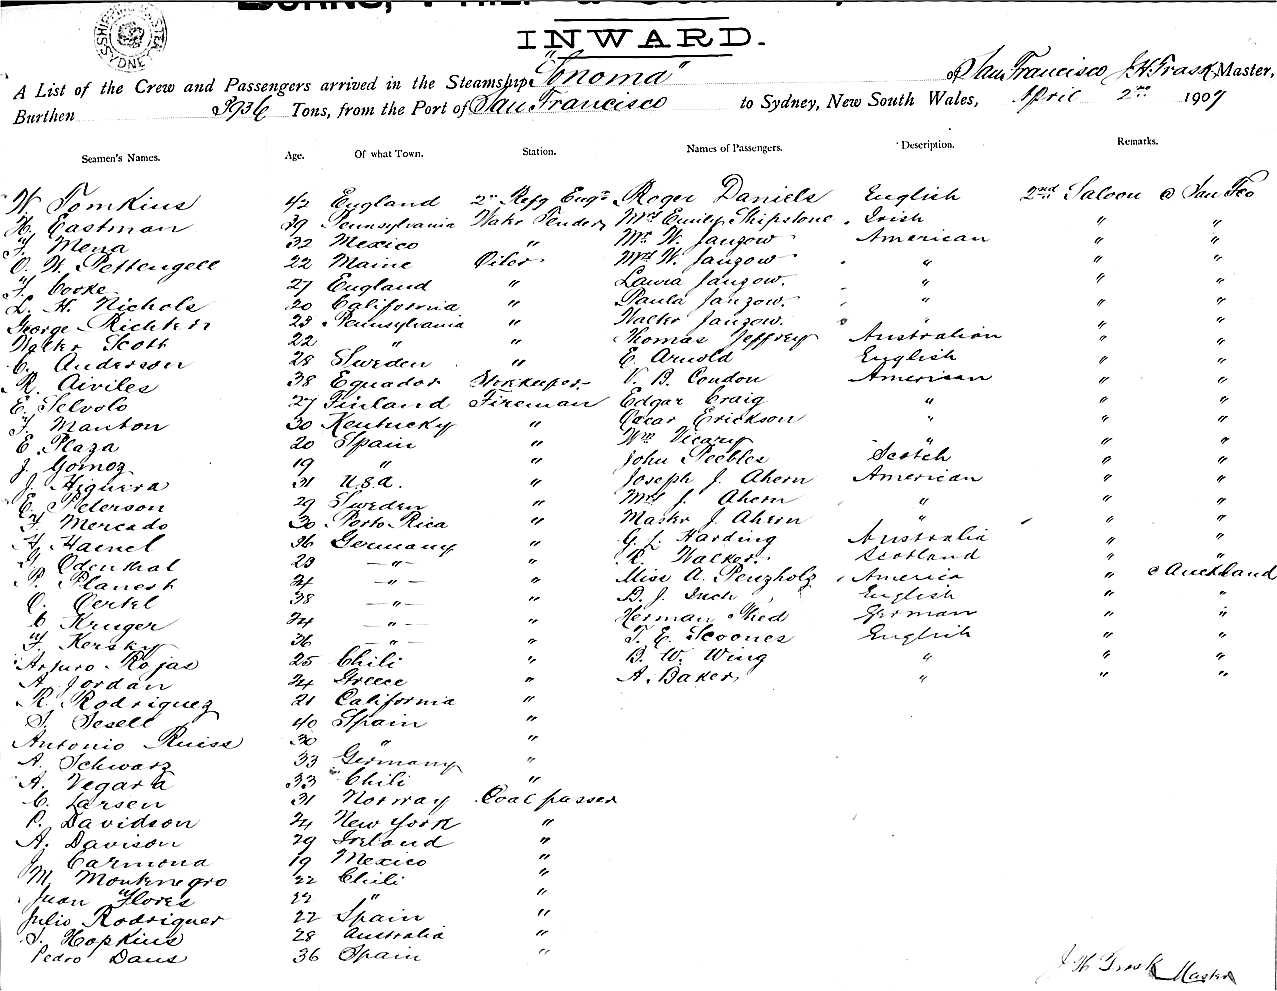 INWARD.
SHIPPING MASTER SYDNEY
A List of the Crew and Passengers arrived in the Steamship "Sonoma" of San Francisco, J.H. Trask Master,
Burthen 3936 Tons, from the Port of San Francisco to Sydney, New South Wales, April 2nd 1907
Seamen's Names. Age. Of what Town. Station. Names of Passengers. Description. Remarks.
W Tomkins 42 England 2nd Refg Engr Roger Daniels English 2nd Saloon @ San Fco
H. Eastman 39 Pennsylvania Water Tender Mrs Emily Shipstone Irish " "
F. Mena 32 Mexico " Mr. W. Janzow American " "
O. W. Pettengell 22 Maine Oiler Mrs W. Janzow " " "
F. Cooke 27 England " Laura Janzow. " " "
L. H. Nichols 20 California " Paula Janzow. " " "
George Richter 23 Pennsylvania " Walter Janzow. " " "
Walter Scott 22 " " Thomas Jeffrey Australian " "
C. Anderson 28 Sweden " E. Arnold English " "
R. Aiviles 38 Equador Storekeeper V. B. Condon American " "
E. Selvolo 27 Finland Fireman Edgar Craig " " "
F. Manton 30 Kentucky " Oscar Erickson " " "
E. Plaza 20 Spain " Wm Vicary " " "
J. Gomoz 19 " " John Peebles Scotch " "
J. Higuera 31 U.S.A. " Joseph J. Ahern American " "
E. Peterson 29 Sweden " Mrs J. Ahern " " "
F. Mercado 30 Porto Rica " Master J. Ahern " " "
H. Hainel 36 Germany " G. L. Harding Australia " "
Odenthal 23 — " — " R. Walker. Scotland " "
P. Planert 24 — " — " Miss A. Penzholz America " @ Auckland
O. Oertel 38 — " — " B. J. Inch English " "
C Kruger 24 — " — " Herman Thed German " "
F. Kersky 36 — " — " T. E. Scoones English " "
Arturo Rojas 25 Chili " B. W. Wing " " "
A. Jordan 24 Greece " A. Baker " " "
R. Rodriguez 21 California "
S. Sesell 40 Spain "
Antonio Ruiss 30 " "
A. Schwarz 33 Germany "
A. Vegara 33 Chili "
C. Larsen 31 Norway Coal passer
P. Davidson 24 New York "
A. Davison 29 Ireland "
J. Carmona 19 Mexico "
M. Montenegro 22 Chili "
Juan Flores 22 " "
Julio Rodriguer 22 Spain "
S. Hopkins 28 Australia "
Pedro Daus 36 Spain "
J. H. Trask Master